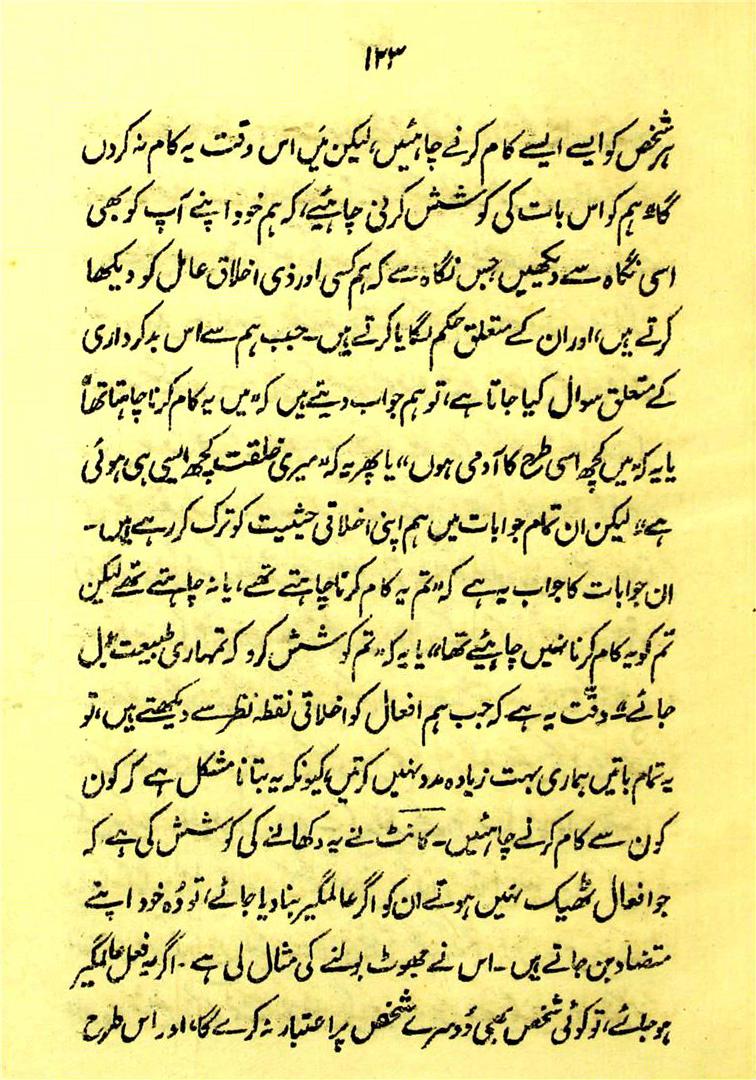 ۱۲۳
ہر شخص کو ایسے ایسے کام کرنے چاہئیں، لیکن میں اس وقت یہ کام نہ کروں
گا" ہم کو اس بات کی کوشش کرنی چاہئیے، کہ ہم خود اپنے آپ کو بھی
اسی نگاہ سے دیکھیں جس نگاہ سے کہ ہم کسی اور ذی اخلاق عامل کو دیکھا
کرتے ہیں، اور ان کے متعلق حکم لگایا کرتے ہیں۔ جب ہم سے اس بدکرداری
کے متعلق سوال کیا جاتا ہے، تو ہم جواب دیتے ہیں کہ "میں یہ کام کرنا چاہتا تھا"
یا یہ کہ "میں کچھ اسی طرح کا آدمی ہوں" یا پھر یہ کہ "میری خلقت کچھ ایسی ہی ہوئی
ہے" لیکن ان تمام جوابات میں ہم اپنی اخلاقی حیثیت کو ترک کر رہے ہیں۔
ان جوابات کا جواب یہ ہے کہ "تم یہ کام کرنا چاہتے تھے، یا نہ چاہتے تھے لیکن
تم کو یہ کام کرنا نہیں چاہئیے تھا" یا یہ کہ "تم کوشش کرو کہ تمہاری طبیعت بدل
جائے" دقّت یہ ہے کہ جب ہم افعال کو اخلاقی نقطہ نظر سے دیکھتے ہیں، تو
یہ تمام باتیں ہماری بہت زیادہ مدد نہیں کرتیں، کیونکہ یہ بتانا مشکل ہے کہ کون
کون سے کام کرنے چاہئیں۔ کانٹ نے یہ دکھانے کی کوشش کی ہے کہ
جو افعال ٹھیک نہیں ہوتے ان کو اگر عالمگیر بنا دیا جائے، تو وُہ خود اپنے
متضاد بن جاتے ہیں۔ اس نے جھوٹ بولنے کی مثال لی ہے۔ اگر یہ فعل عالمگیر
ہو جائے، تو کوئی شخص بھی دُوسرے شخص پر اعتبار نہ کرے گا، اور اس طرح